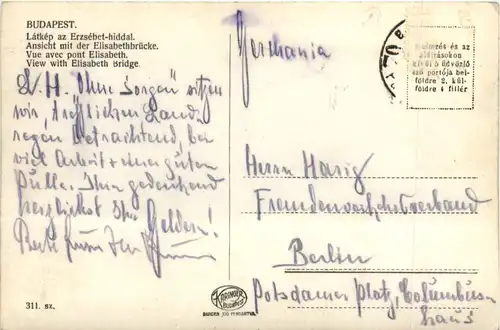 BUDAPEST.
Látkép az Erzsébet-hiddal.
Ansicht mit der Elisabethbrücke.
Vue avec pont Elisabeth.
View with Elisabeth Bridge.
L. H. Ohne Sorgen sitzen
wir, tröstlichen Land-
regen betrachtend, bei
viel Arbeit + einer guten
Pulle. Ihrer gedenkend
herzlichst Ihr
Germania
és az
előírásokon
kívül 5 üdvözlő
szó portója bel-
földre 2, kül-
földre 4 fillér
Herrn Harig
Fremdenverkehrsverband
Berlin
Potsdamer Platz, Columbus-
haus
311. sz.
KARINGER
Budapest